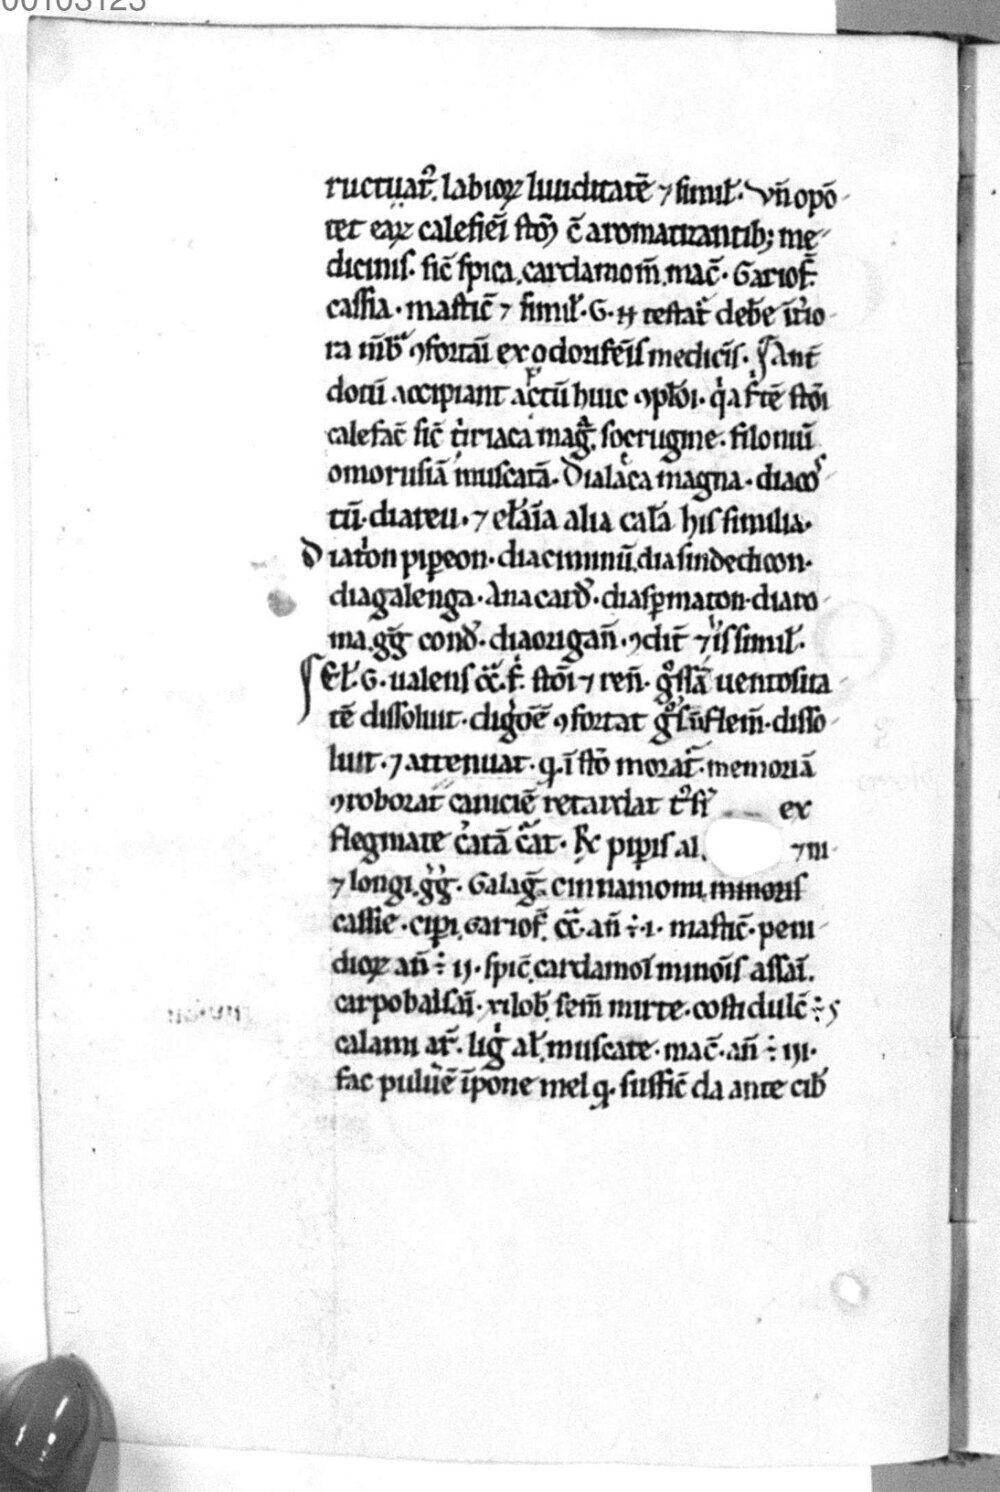 00103123
ructuat᷒. labioꝝ liuiditatē ⁊ simil̓. Vn̄ opō
tet eaꝝ calefieī stoꝫ c̄ aromatizantib; me
dicinis. sic̄ spica. cardamom̄. mac̄. Gariof̄.
cassia. mastic̄ ⁊ simil̓. G. restat᷒ deb̄e īt᷒io
ra m̄b᷒ ꝯfortaī ex odorifeīs medicīs. Ant̄
dotū accipiant actū huic ꝯpl̓oi. q̇a stōi
calefac̄ sic̄ tiriaca maḡ. socrugine. filoniū
omorusiā muscatā. Dialaca magna. diaco
tū. diateu. ⁊ el̓a͞ia alia cal̓a his similia.
Diaton piꝑeon. diaciminū. diasindechcon.
diagalenga. Anacard̓. diasꝑmaton. diaro
ma. gḡ cond̓. diaorigan̄. ꝯdit̄ ⁊ iis simil̓.
El̓. G. ualens stōi ⁊ ren̄. g᷒ssā uentosita
tē dissoluit. digōē ꝯfortat flem̄. disso
luit. ⁊ attenuat. q. ī stō morat᷒. memoriā
ꝯroborat caniciē retardat ex
flegmate c̄atā c̄at. ℞ piꝑis al. ⁊ ni
⁊ longi. gḡ. Galaḡ. cinnamomi minoris
cassie. ciꝑi. Gariof̄. an̄ .i. mastic̄. peni
dioꝝ an̄ ij. spic̄. cardamoī minoīs assaī.
carpobalsaī. xilob̓. sem̄ mirte. costi dulc̄
calami ar̄. lig̓ al̓. muscate. mac̄. an̄ iij.
fac puluē īpone mel q. suffic̄ da ante cib̓